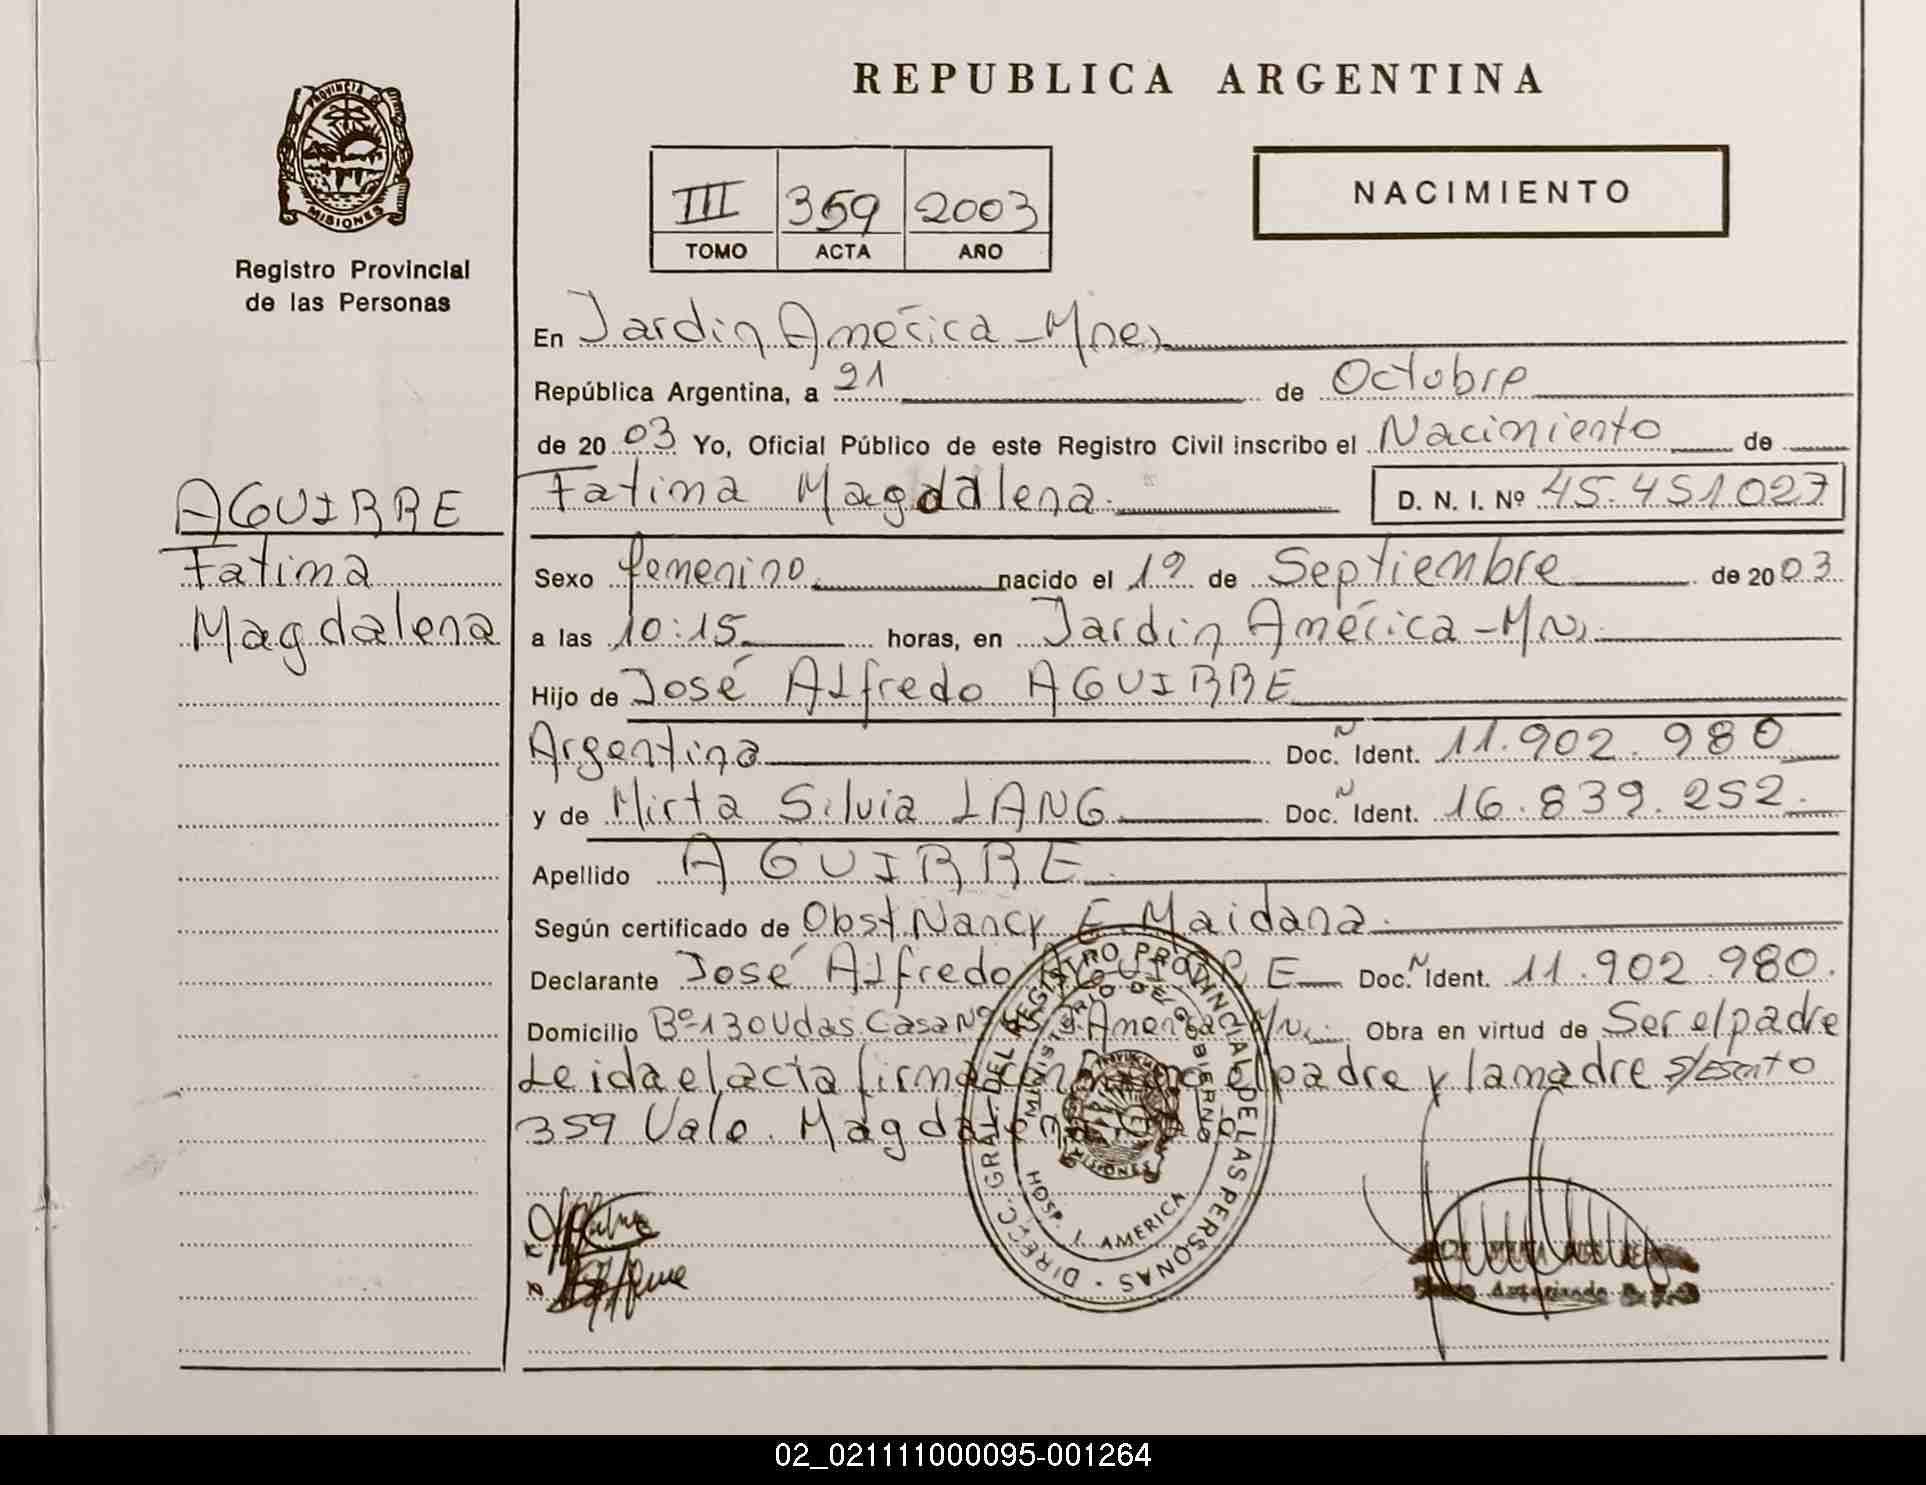 PROVINCIA DE
MISIONES
Registro Provincial
de las Personas
AGUIRRE
Fatima
Magdalena
REPUBLICA ARGENTINA
III 359 2003
TOMO ACTA AÑO
NACIMIENTO
En Jardin América - Mnes
República Argentina, a 21 de Octubre
de 2003 Yo, Oficial Público de este Registro Civil inscribo el Nacimiento de
Fatima Magdalena D. N. I. Nº 45.451.027
Sexo femenino nacido el 19 de Septiembre de 2003
a las 10:15 horas, en Jardin América - Mns.
Hijo de José Alfredo AGUIRRE
Argentina Doc. N Ident. 11.902.980
y de Mirta Silvia LANG Doc. N Ident. 16.839.252.
Apellido AGUIRRE
Según certificado de Obst Nancy E. Maidana
Declarante José Alfredo AGUIRRE Doc. N Ident. 11.902.980.
Domicilio Bº 130 Vdas. Casa Nº América Mn. Obra en virtud de Ser el padre
Leida el acta firma el padre y la madre s/Escrito
359 Vale. Magdalena
DIRECC. GRAL. DEL REGISTRO PROVINCIAL DE LAS PERSONAS
MINISTERIO DE GOBIERNO
MISIONES
HOSP. J. AMERICA
02_021111000095-001264